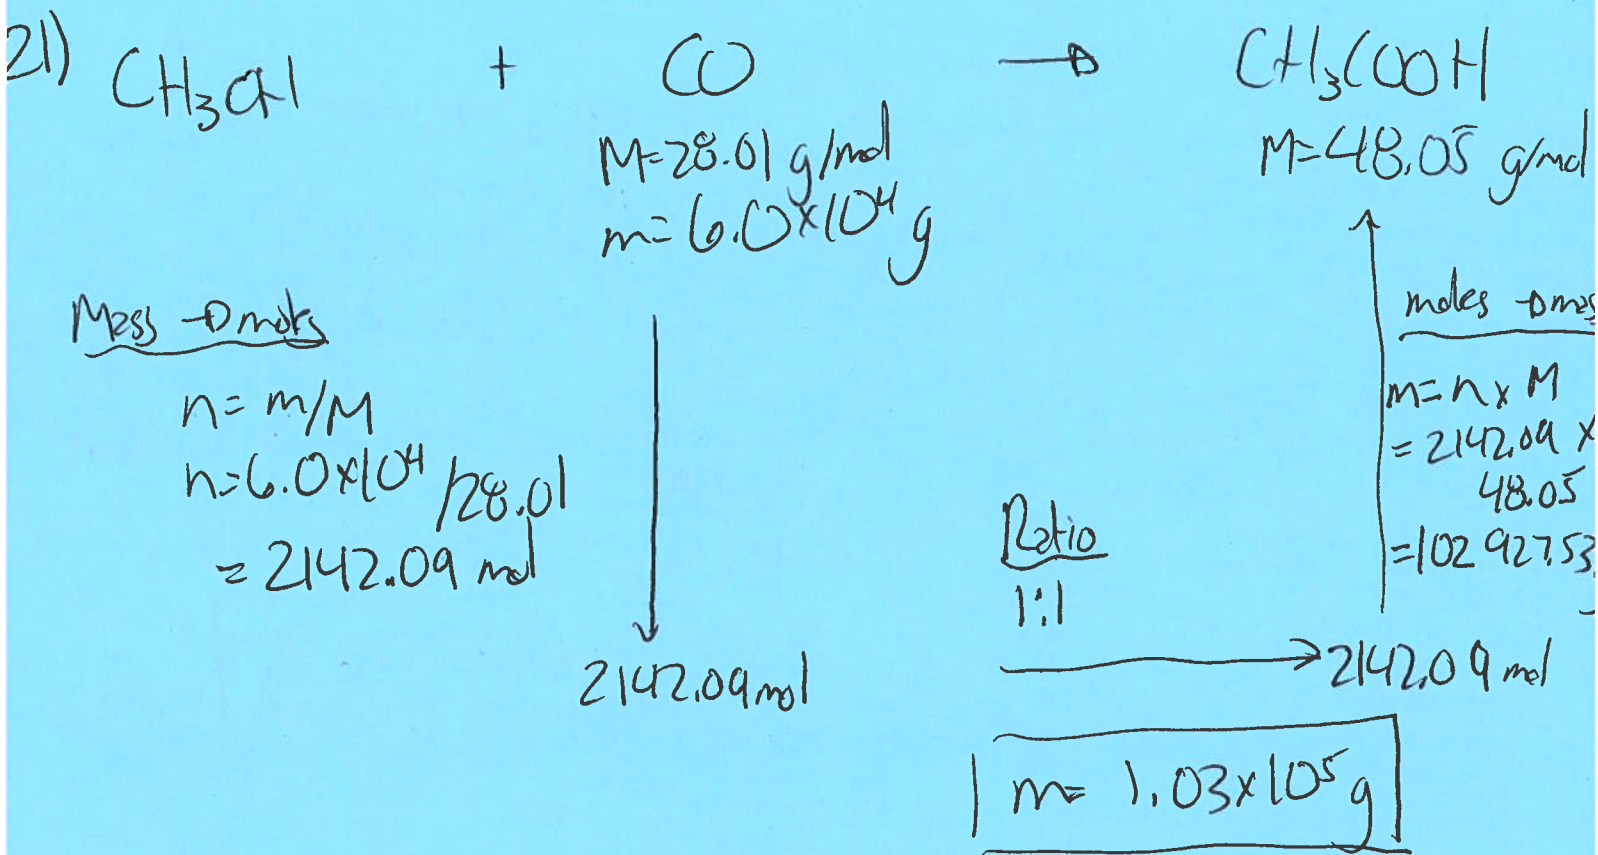 21) CH₃OH + CO → CH₃COOH
M=28.01 g/mol
m=6.0×10⁴ g
M=48.05 g/mol
Mass → moles
n=m/M
n=6.0×10⁴/28.01
=2142.09 mol
2142.09 mol
Ratio
1:1
→ 2142.09 mol
moles → mas
m=n×M
=2142.09 ×
48.05
=102 927.53
m= 1.03×10⁵ g